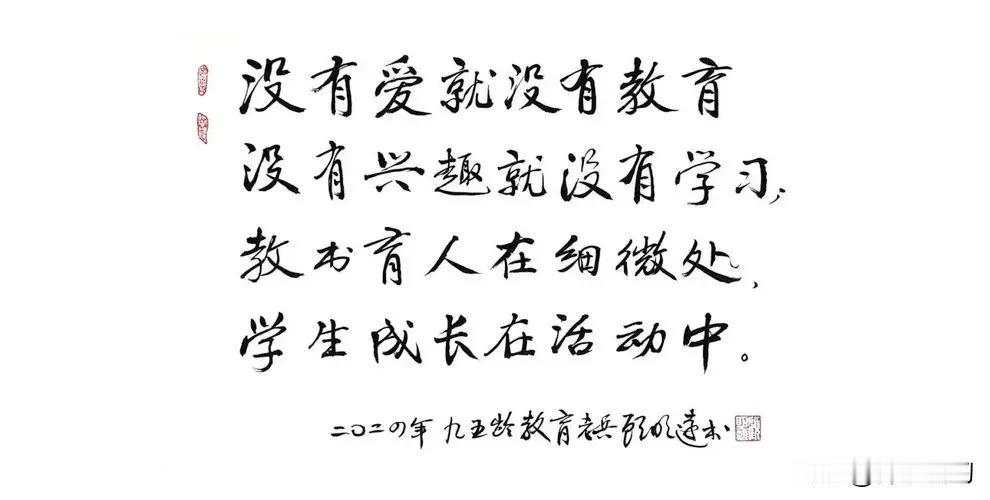 没有爱就没有教育
没有兴趣就没有学习，
教书育人在细微处，
学生成长在活动中。
二〇二四年 九五龄教育老兵顾明远书